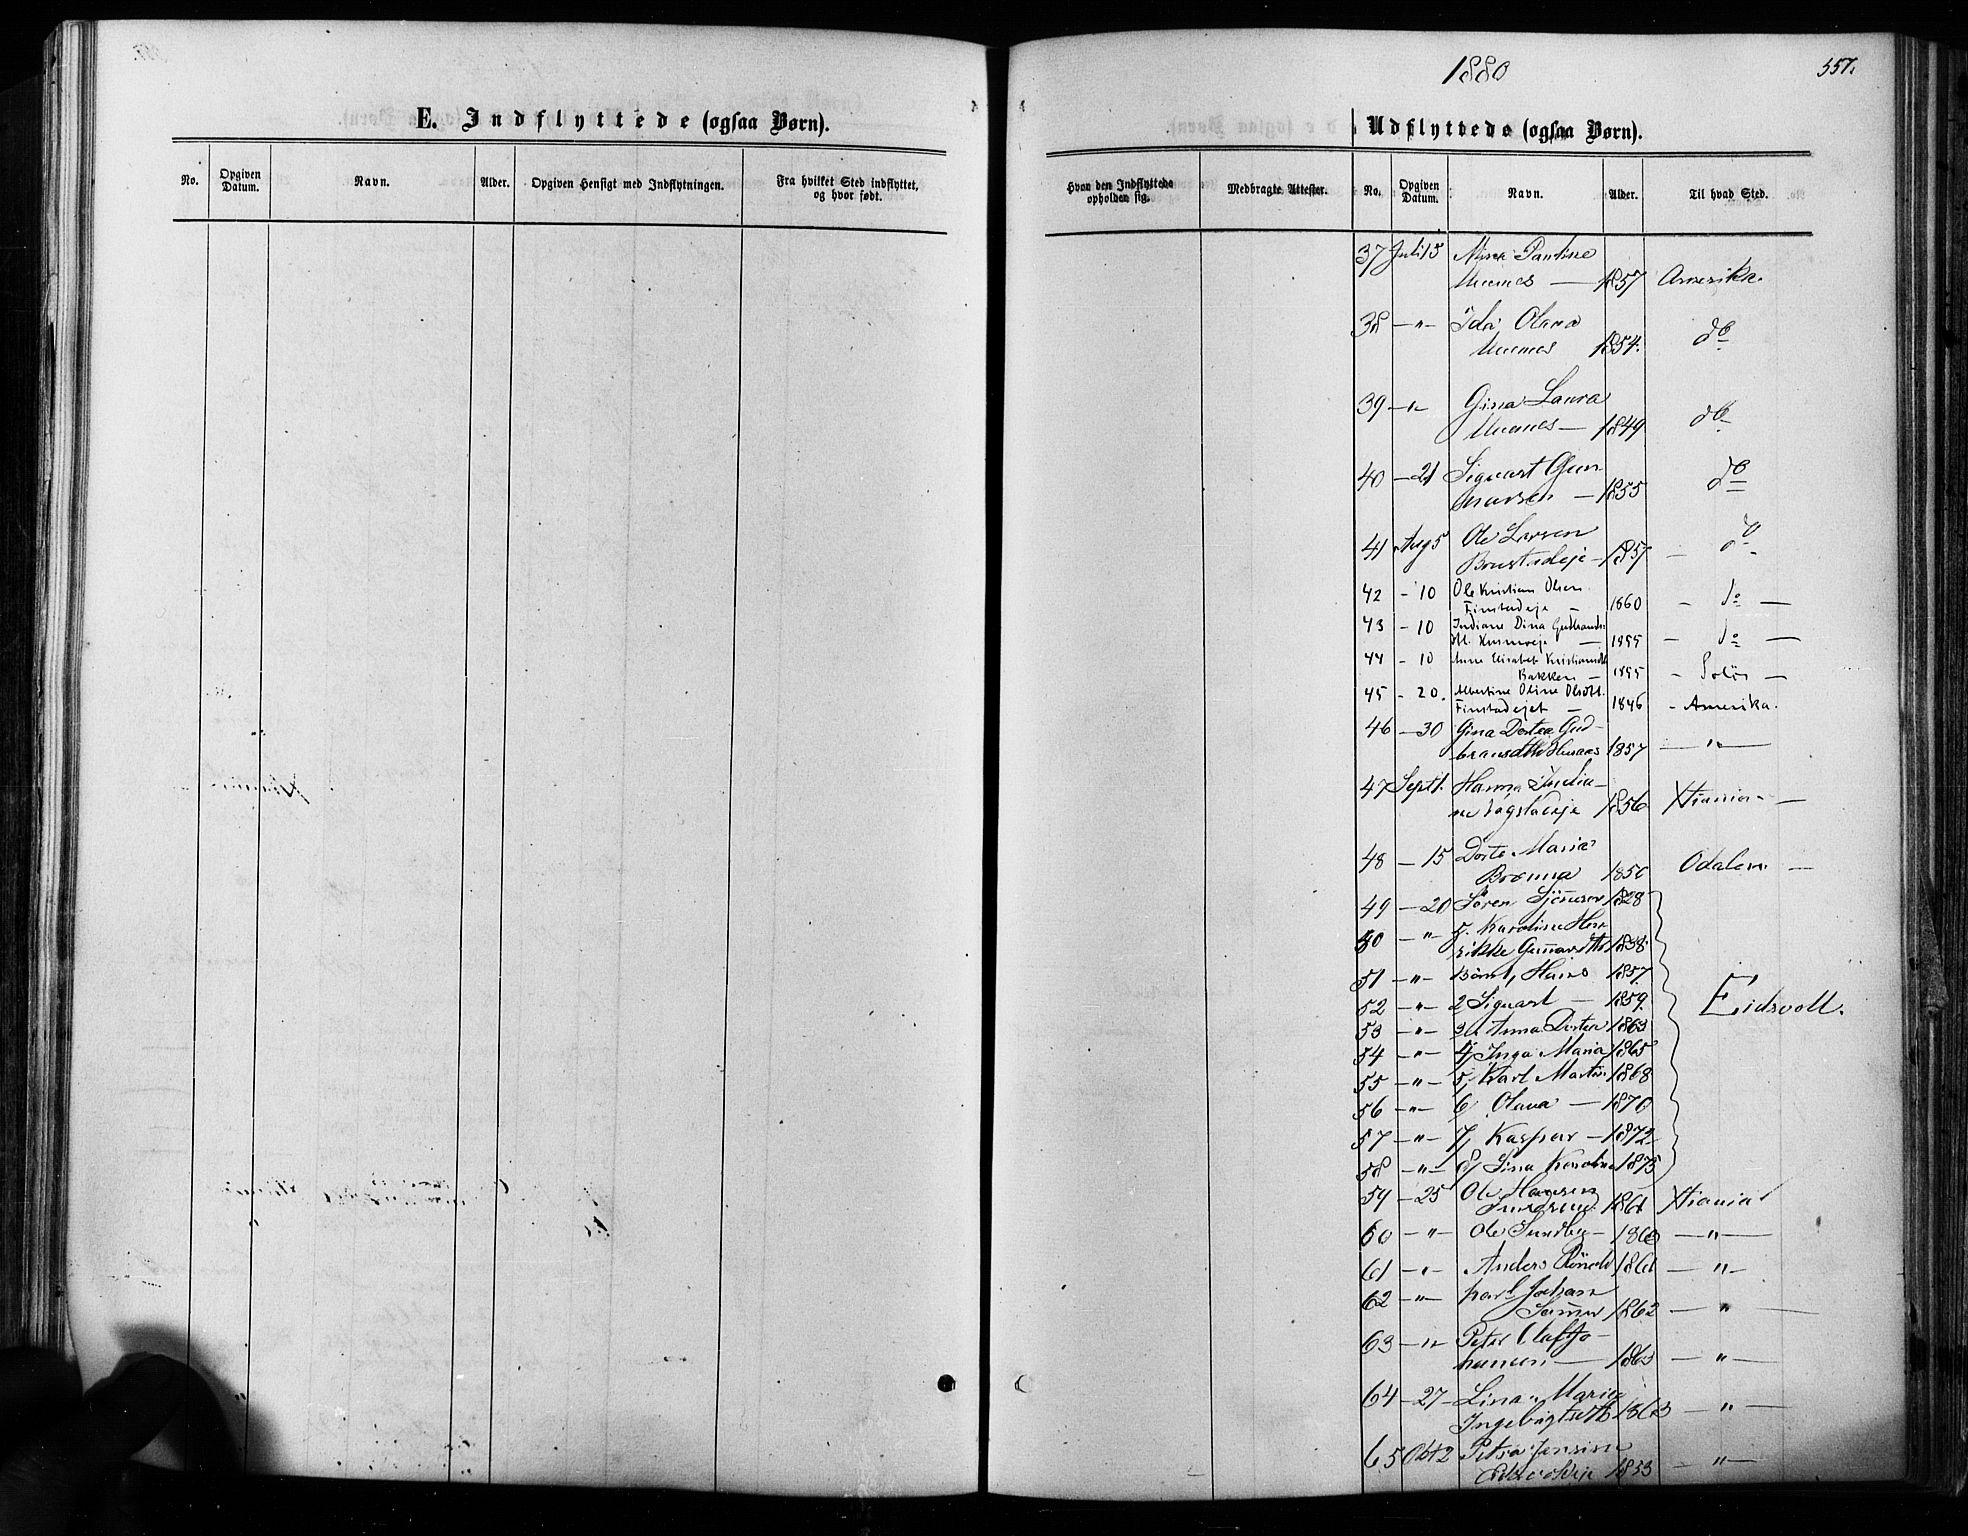 E. Indflyttede (ogsaa Børn).
No. Opgiven Datum. Navn. Alder. Opgiven Hensigt med Indflytningen. Fra hvilket Sted indflyttet, og hvor født.
1880
357.
Udflyttede (ogsaa Børn).
Hvor den Indflyttede opholder sig. Medbragte Attester. No. Opgiven Datum. Navn. Alder. Til hvad Sted.
37 Juli 15 Mina Pauline
1857 Amerika.
38 — " — Ida Olava
1854. do
39 — " — Gina Laura
1849 do
40 — 21 Siguart Gun
narsen — 1855 do
41 Aug 5 Ole Larsen
Brustadeje — 1857 — do
42 - 10 Ole Kristian Olsen
Finstadeje — 1860 — do —
43 - 10 Indiane Dina Gudbrands
dtt. 1855 — do —
44 - 10 Anne Elisabet Kristiansdtt
Bakken — 1855 - Solør —
45 - 20. Albertine Oline Olsdtt.
Finstadejet — 1846 - Amerika.
46 — 30 Gina Dortea Gud-
bransdtt 1857 — " —
47 Sept 1. Hanna India-
ne 1856 Xiania —
48 — 15 Dorte Maria
1850 Odalen —
49 — 20 Sören 1828
50 — " — Karoline Hen
rikke Gunnarsdtt 1838
51 — " — Børn 1, Hans 1857.
52 — " — 2 Siguart — 1859.
53 — " — 3, Anna Dortea 1863
54 — " — 4, Inga Maria 1865
55 — " — 5, Karl Martin 1868
56 — " — 6, Olava — 1870
57 — " — 7, Kaspar — 1872
58 — " — 8, Lina Karoline 1875
Eidsvoll.
59 — 25 Ole Hansen
1861 Xiania
60 — " — Ole Sundby — 1860 — " —
61 — " — Anders 1861 — " —
62 — " — Karl Johan
1862 — " —
63 — " — Peter Olaf Jo-
hansen — 1863 — " —
64 — 27 — Lina Marie
Ingebrigtsdtt 1863 — " —
65 Okt 2 Petra Jensine
1853 — " —